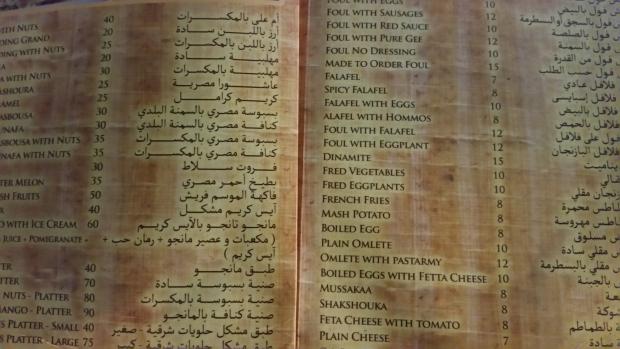 WITH NUTS 40 أم على بالمكسرات
DING GRAND 20 أرز باللبن سادة
DING WITH NUTS 25 أرز باللبن بالمكسرات
20 مهلبية سادة
A WITH NUTS 30 مهلبية بالمكسرات
ASHOURA 25 عاشورا مصرية
AMEL 25 كريم كرامل
ASBOUSA 30 بسبوسة مصري بالسمنة البلدي
UNAFA 30 كنافة مصري بالسمنة البلدي
ASBOUSA WITH NUTS 35 بسبوسة مصري بالمكسرات
UNAFA WITH NUTS 35 كنافة مصري بالمكسرات
30 فروت سلاط
TER MELON 35 بطيخ أحمر مصري
SH FRUITS 50 فاكهة الموسم فريش
X 40 آيس كريم مشكل
O WITH ICE CREAM 60 مانجو تانجو بالآيس كريم
JUICE + POMIGRANATE + ( مكعبات و عصير مانجو + رمان حب +
آيس كريم )
TTER 40 طبق مانجو
TTER 70 صنية بسبوسة سادة
NUTS - PLATTER 80 صنية بسبوسة بالمكسرات
ANGO - PLATTER 90 صنية كنافة بالمانجو
S PLATTER - SMALL 40 طبق مشكل حلويات شرقية - صغير
S PLATTER - LARGE 75 طبق مشكل حلويات شرقية - كبير
FOUL WITH EGGS 10 فول بالبيض
FOUL WITH SAUSAGES 12 فول بالسجق أو بالبسطرمة
FOUL WITH RED SAUCE 10 فول بالصلصة
FOUL WITH PURE GEF 12 فول بالسمنة
FOUL NO DRESSING 10 فول من القدرة
MADE TO ORDER FOUL 15 فول حسب الطلب
FALAFEL 7 فلافل عادي
SPICY FALAFEL 8 فلافل
FALAFEL WITH EGGS 10 فلافل بالبيض
ALAFEL WITH HOMMOS 8 فلافل بالحمص
FOUL WITH FALAFEL 12 فول على فلافل
FOUL WITH EGGPLANT 12 بالبازنجان
DINAMITE 15
FRED VEGETABLES 10
FRED EGGPLANTS 10 مقلي
FRENCH FRIES 8 محمرة
MASH POTATO 8 مهروسة
BOILED EGG 8 مسلوق
PLAIN OMLETE 8 مقلي سادة
OMLETE WITH PASTARMY 12 مقلي بالبسطرمة
BOILED EGGS WITH FETTA CHEESE 10 بالجبنة
MUSSAKAA 8
SHAKSHOUKA 8
FETA CHEESE WITH TOMATO 8 بالطماطم
PLAIN CHEESE 7 سادة